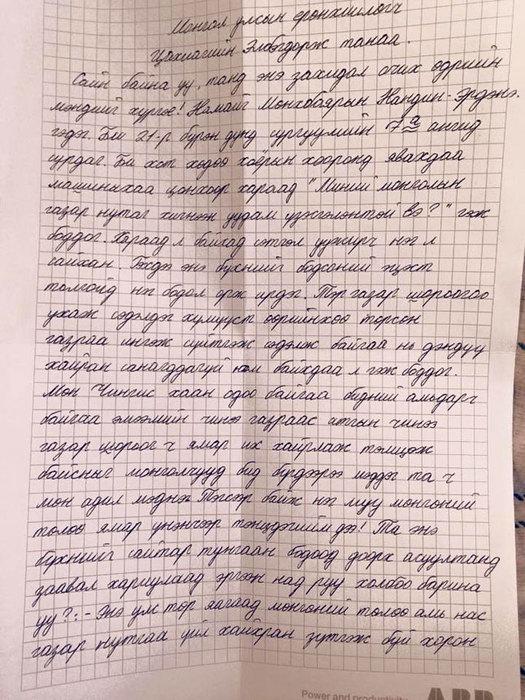 Монгол улсын ерөнхийлөгч
Цахиагийн Элбэгдорж танаа.
Сайн байна уу, танд энэ захидал очих өдрийн
мэндийг хүргэе! Намайг Мөнхбаярын Нандин-Эрдэнэ
гэдэг. Би 21-р бүрэн дунд сургуулийн 7а ангид
сурдаг. Би хот хөдөө хоёрын хооронд явахдаа
машиныхаа цонхоор хараад "Миний монголын
газар нутаг хичнээн уудам үзэсгэлэнтэй вэ?" гэж
боддог. Хараад л байхад сэтгэл уужирч нэг л
сайхан. Гэхдээ энэ бүхнийг бодсоний эцэст
толгойд нэг бодол орж ирдэг. Тэр газар шороогоо
ухаж сэдэлдэг хүмүүст өөрийнхөө төрсөн
газраа ингэж сүйтгэж сэдэлж байгаа нь дэндүү
хайран санагддаггүй юм байхдаа л гэж боддог.
Мөн Чингис хаан одоо байгаа бидний амьдарч
байгаа эмээлийн чинээ газраас атгын чинээ
газар шороог ч ямар их хайрлаж тэмцэж
байсныг монголчууд бид бүгдээрээ мэддэг та ч
мөн адил мэднэ. Тэгсэр байж нэг муу мөнгөний
төлөө ямар үнэнгээр тэнцдэгийм дээ! Та энэ
бүхнийг сайтар тунгаан бодоод доорх асуултанд
заавал хариулаад эргээн над руу холбоо барина
уу?: - Энэ улс төр яагаад мөнгөний төлөө амь нас
газар нутгаа үйл хайхран зүтгэж буй хорон
Power and productivity
ABB